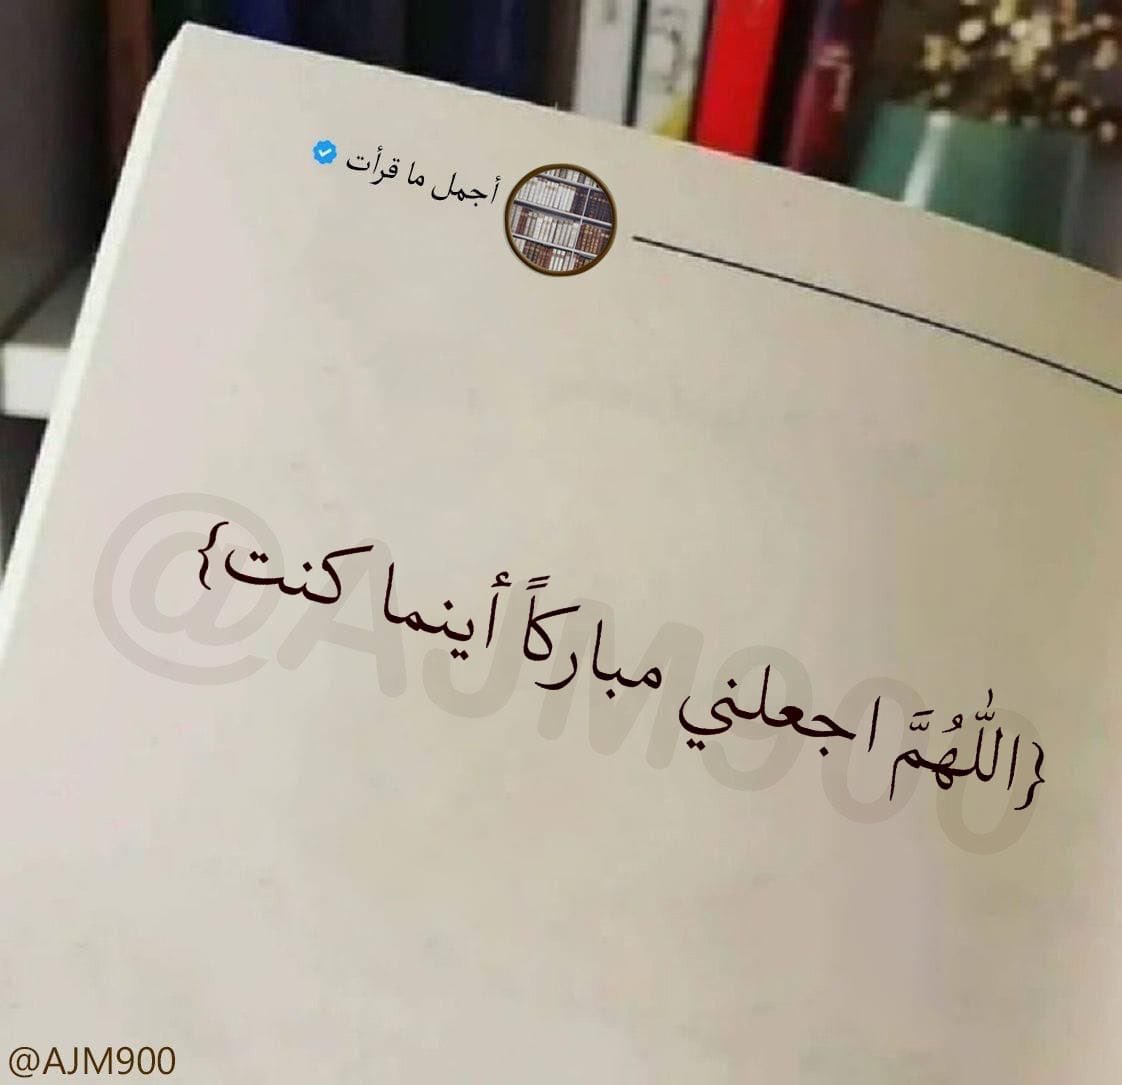 أجمل ما قرأت
{اللّٰهُمَّ اجعلني مباركاً أينما كنت}
@AJM900
@AJM900